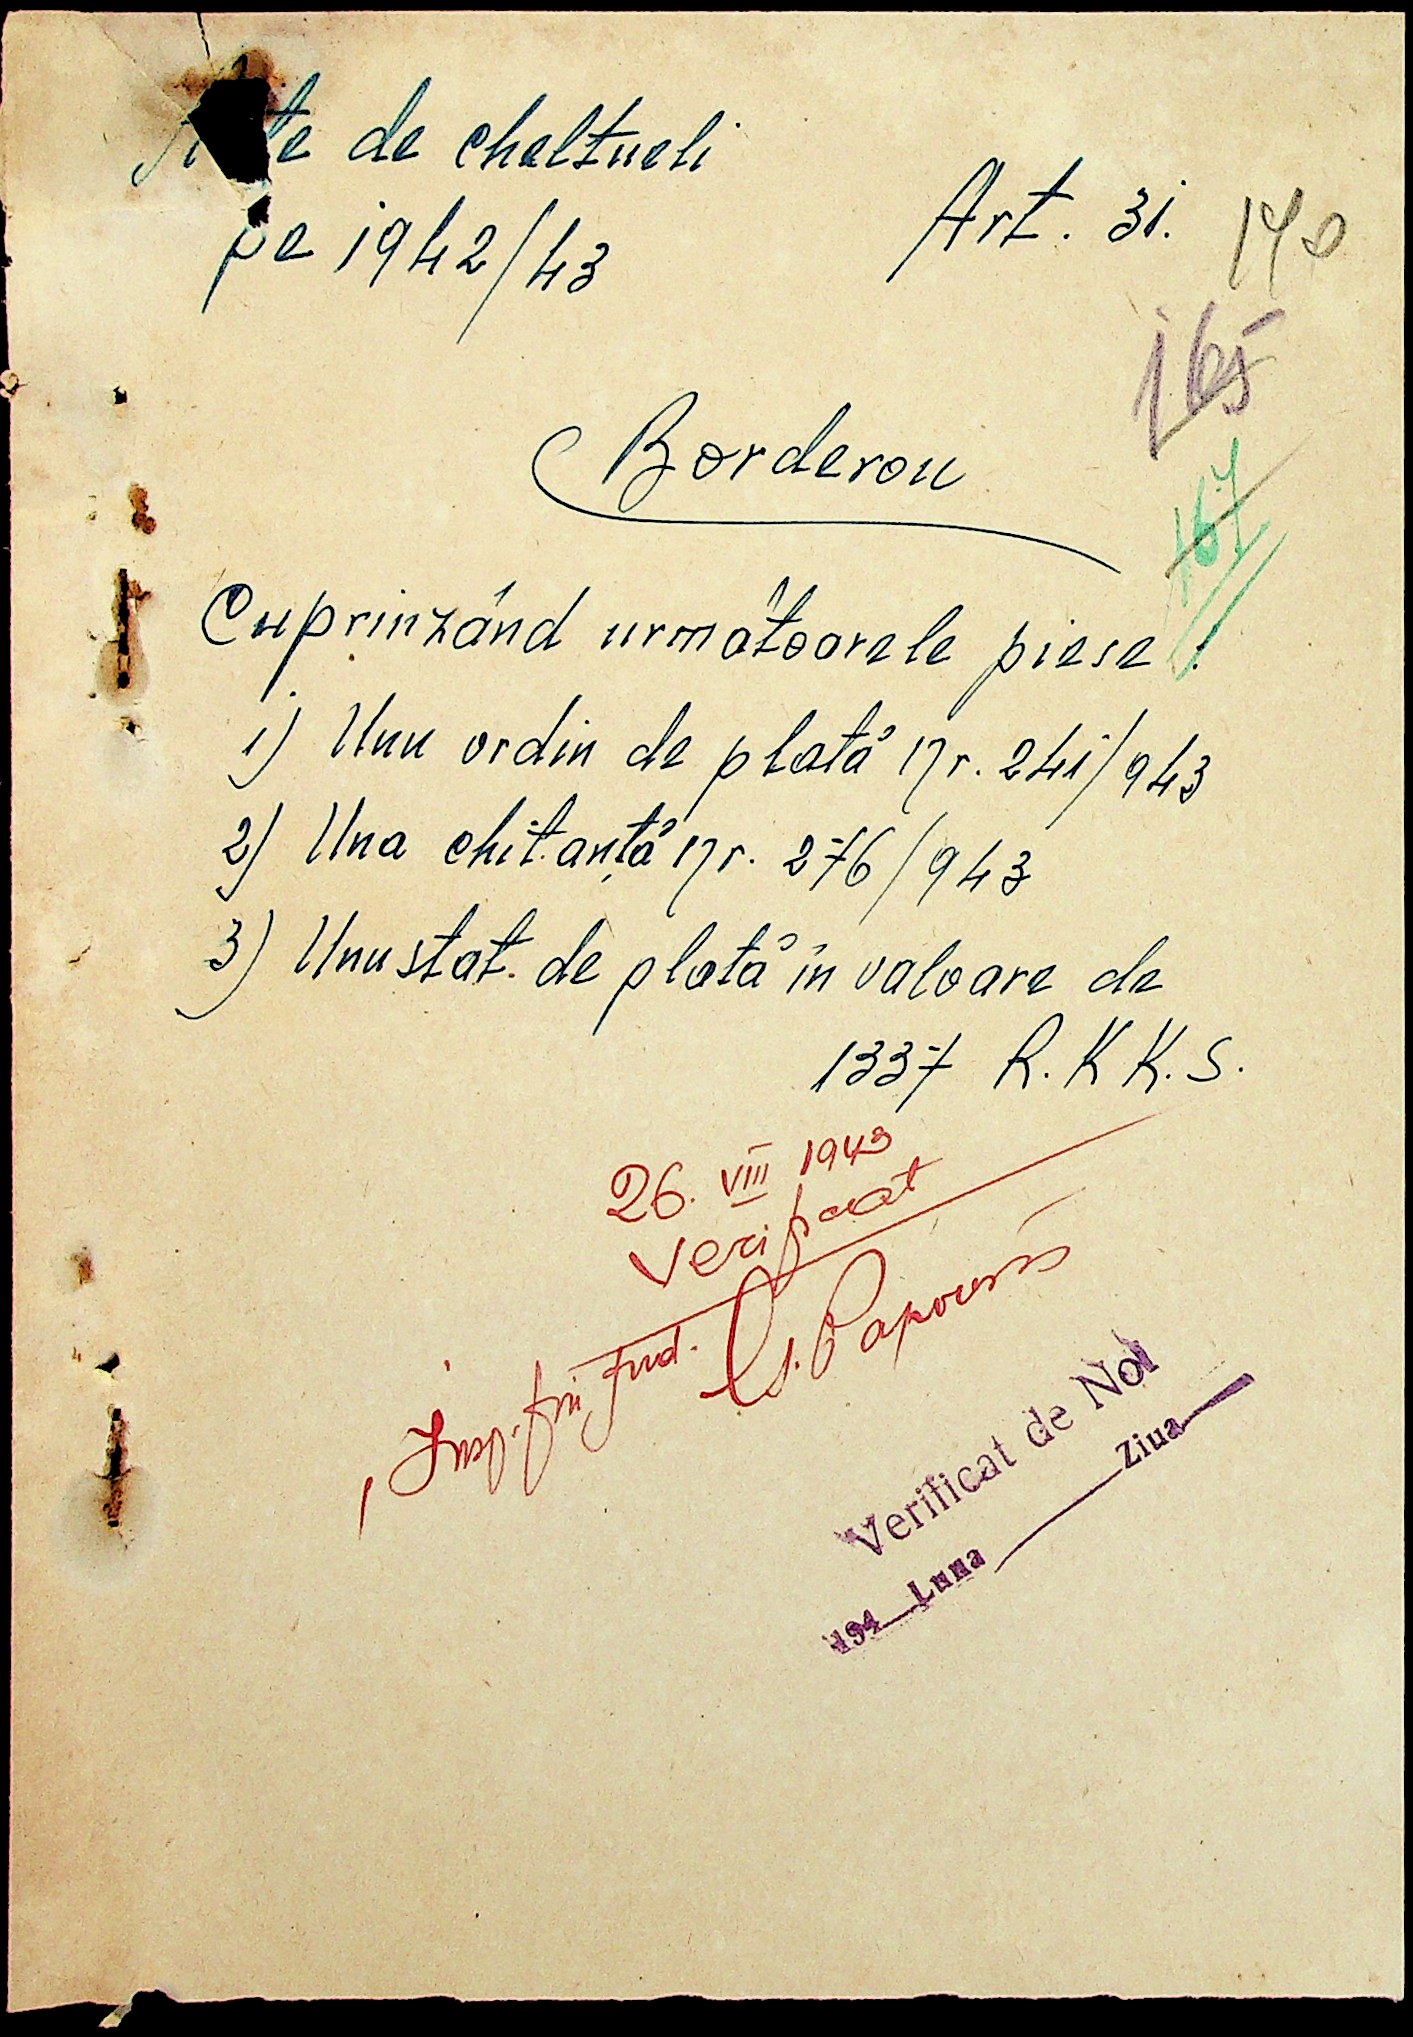 Acte de cheltueli
pe 1942/43
Art. 31.
165
167
Borderou
Cuprinzând următoarele piese :
1) Unu ordin de plată Nr. 241/943
2) Una chitanță Nr. 276/943
3) Unu stat. de plată în valoare de
1337 R.K K.S.
26. VIII 1943
Verificat
Insp. fin jud.
Verificat de Noi
194 Luna Ziua